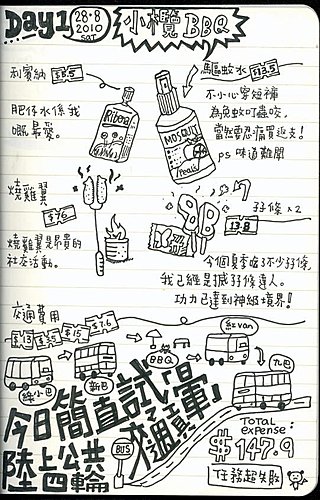 Day1
28·8
2010
SAT
小欖 BBQ
利賓納 $8.5
肥仔水係我
嘅最愛。
Ribena
馬區蚊水 $43.5
不小心穿短褲
為免蚊叮蟲咬,
當然要忍痛買返支!
ps 味道難聞
MOSQUITO
燒雞翼
$76
燒雞翼是昂貴的
社交活動。
孖條 x 2
13.8
今個夏季吃了不少孖條,
我已經是搣孖條達人。
功力已達到神級境界!
交通費用
$15
$7.6
綠小巴
新巴
BBQ
紅van
九巴
BUS
今日簡直試暈
陸上公共
交通輪
Total
expense:
$147.9
任務超失敗